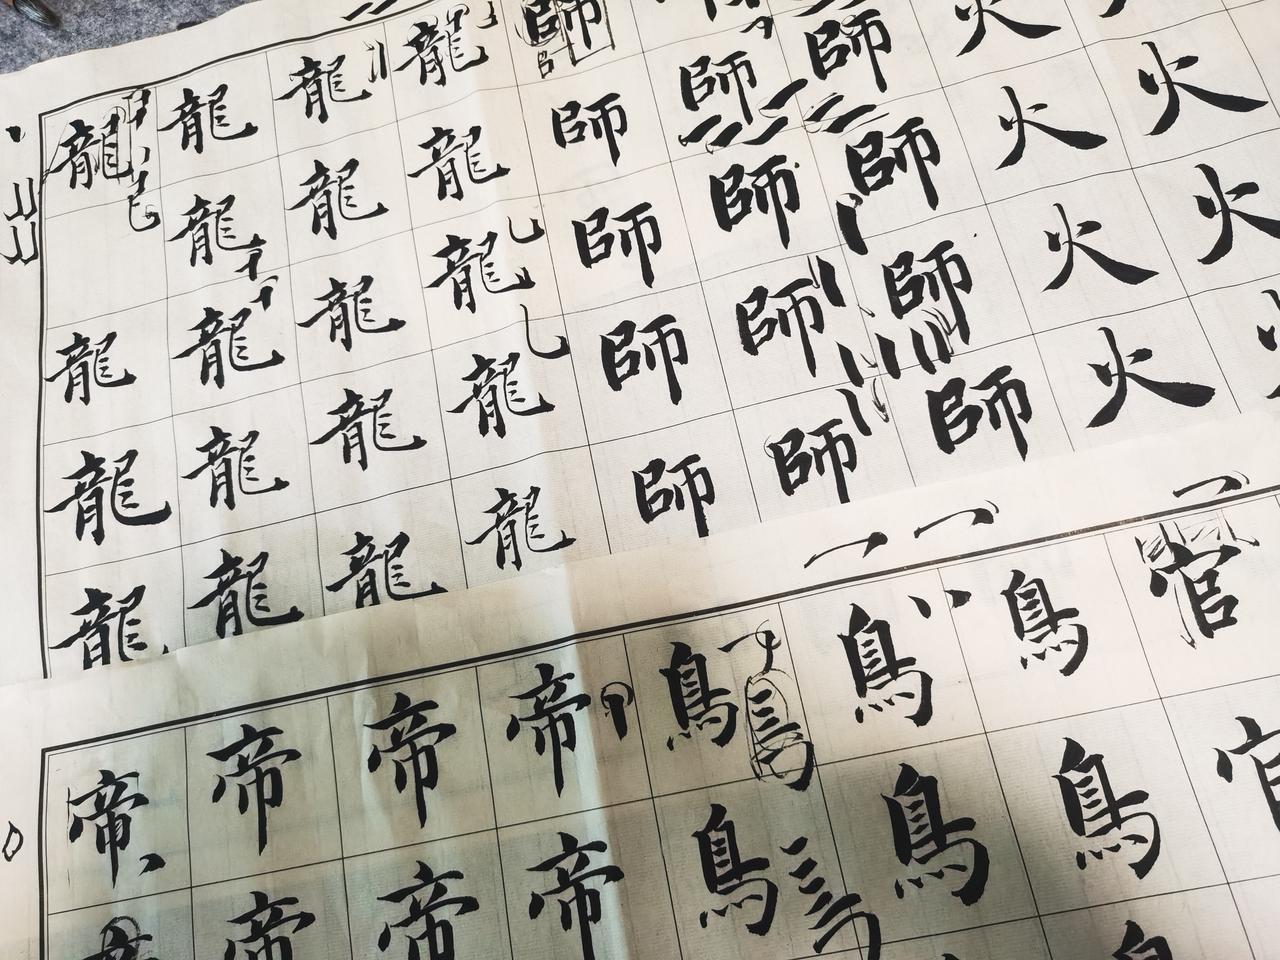 龍龍龍龍
龍龍龍龍龍
龍龍龍龍龍
龍龍龍龍龍
師師師師師
師師師師
師師師師
火火火火
火火
帝
帝帝
帝帝
帝帝
鳥鳥
鳥鳥
鳥鳥
官官